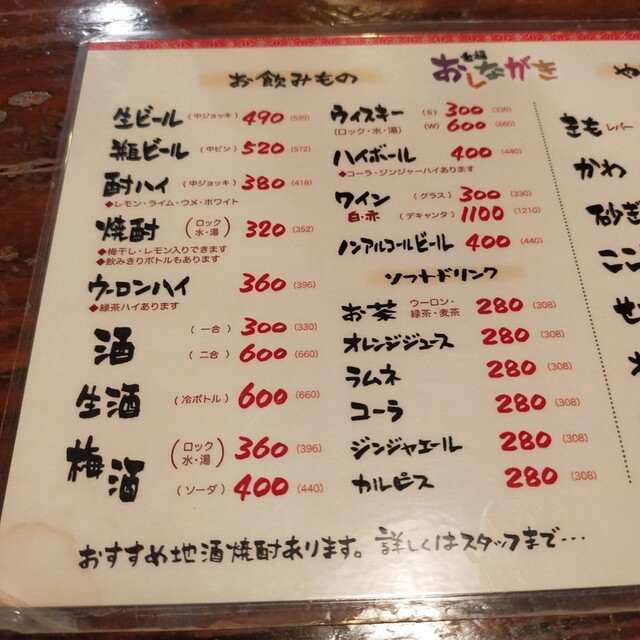 おしながき
お飲みもの
生ビール (中ジョッキ) 490 (539)
瓶ビール (中ビン) 520 (572)
酎ハイ (中ジョッキ) 380 (418)
◆レモン・ライム・ウメ・ホワイト
焼酎 (ロック 水・湯) 320 (352)
◆梅干し・レモン入りできます
◆飲みきりボトルもあります
ウーロンハイ 360 (396)
◆緑茶ハイあります
酒 (一合) 300 (330)
(二合) 600 (660)
生酒 (冷ボトル) 600 (660)
梅酒 (ロック 水・湯) 360 (396)
(ソーダ) 400 (440)
ウィスキー (S) 300 (330)
(ロック・水・湯) (W) 600 (660)
ハイボール 400 (440)
◆コーラ・ジンジャーハイあります
ワイン (グラス) 300 (330)
白・赤 (デキャンタ) 1100 (1210)
ノンアルコールビール 400 (440)
ソフトドリンク
お茶 ウーロン・緑茶・麦茶 280 (308)
オレンジジュース 280 (308)
ラムネ 280 (308)
コーラ 280 (308)
ジンジャエール 280 (308)
カルピス 280 (308)
おすすめ地酒焼酎あります。詳しくはスタッフまで…
や
きも レバー
かわ
砂ぎ
ここ
せ